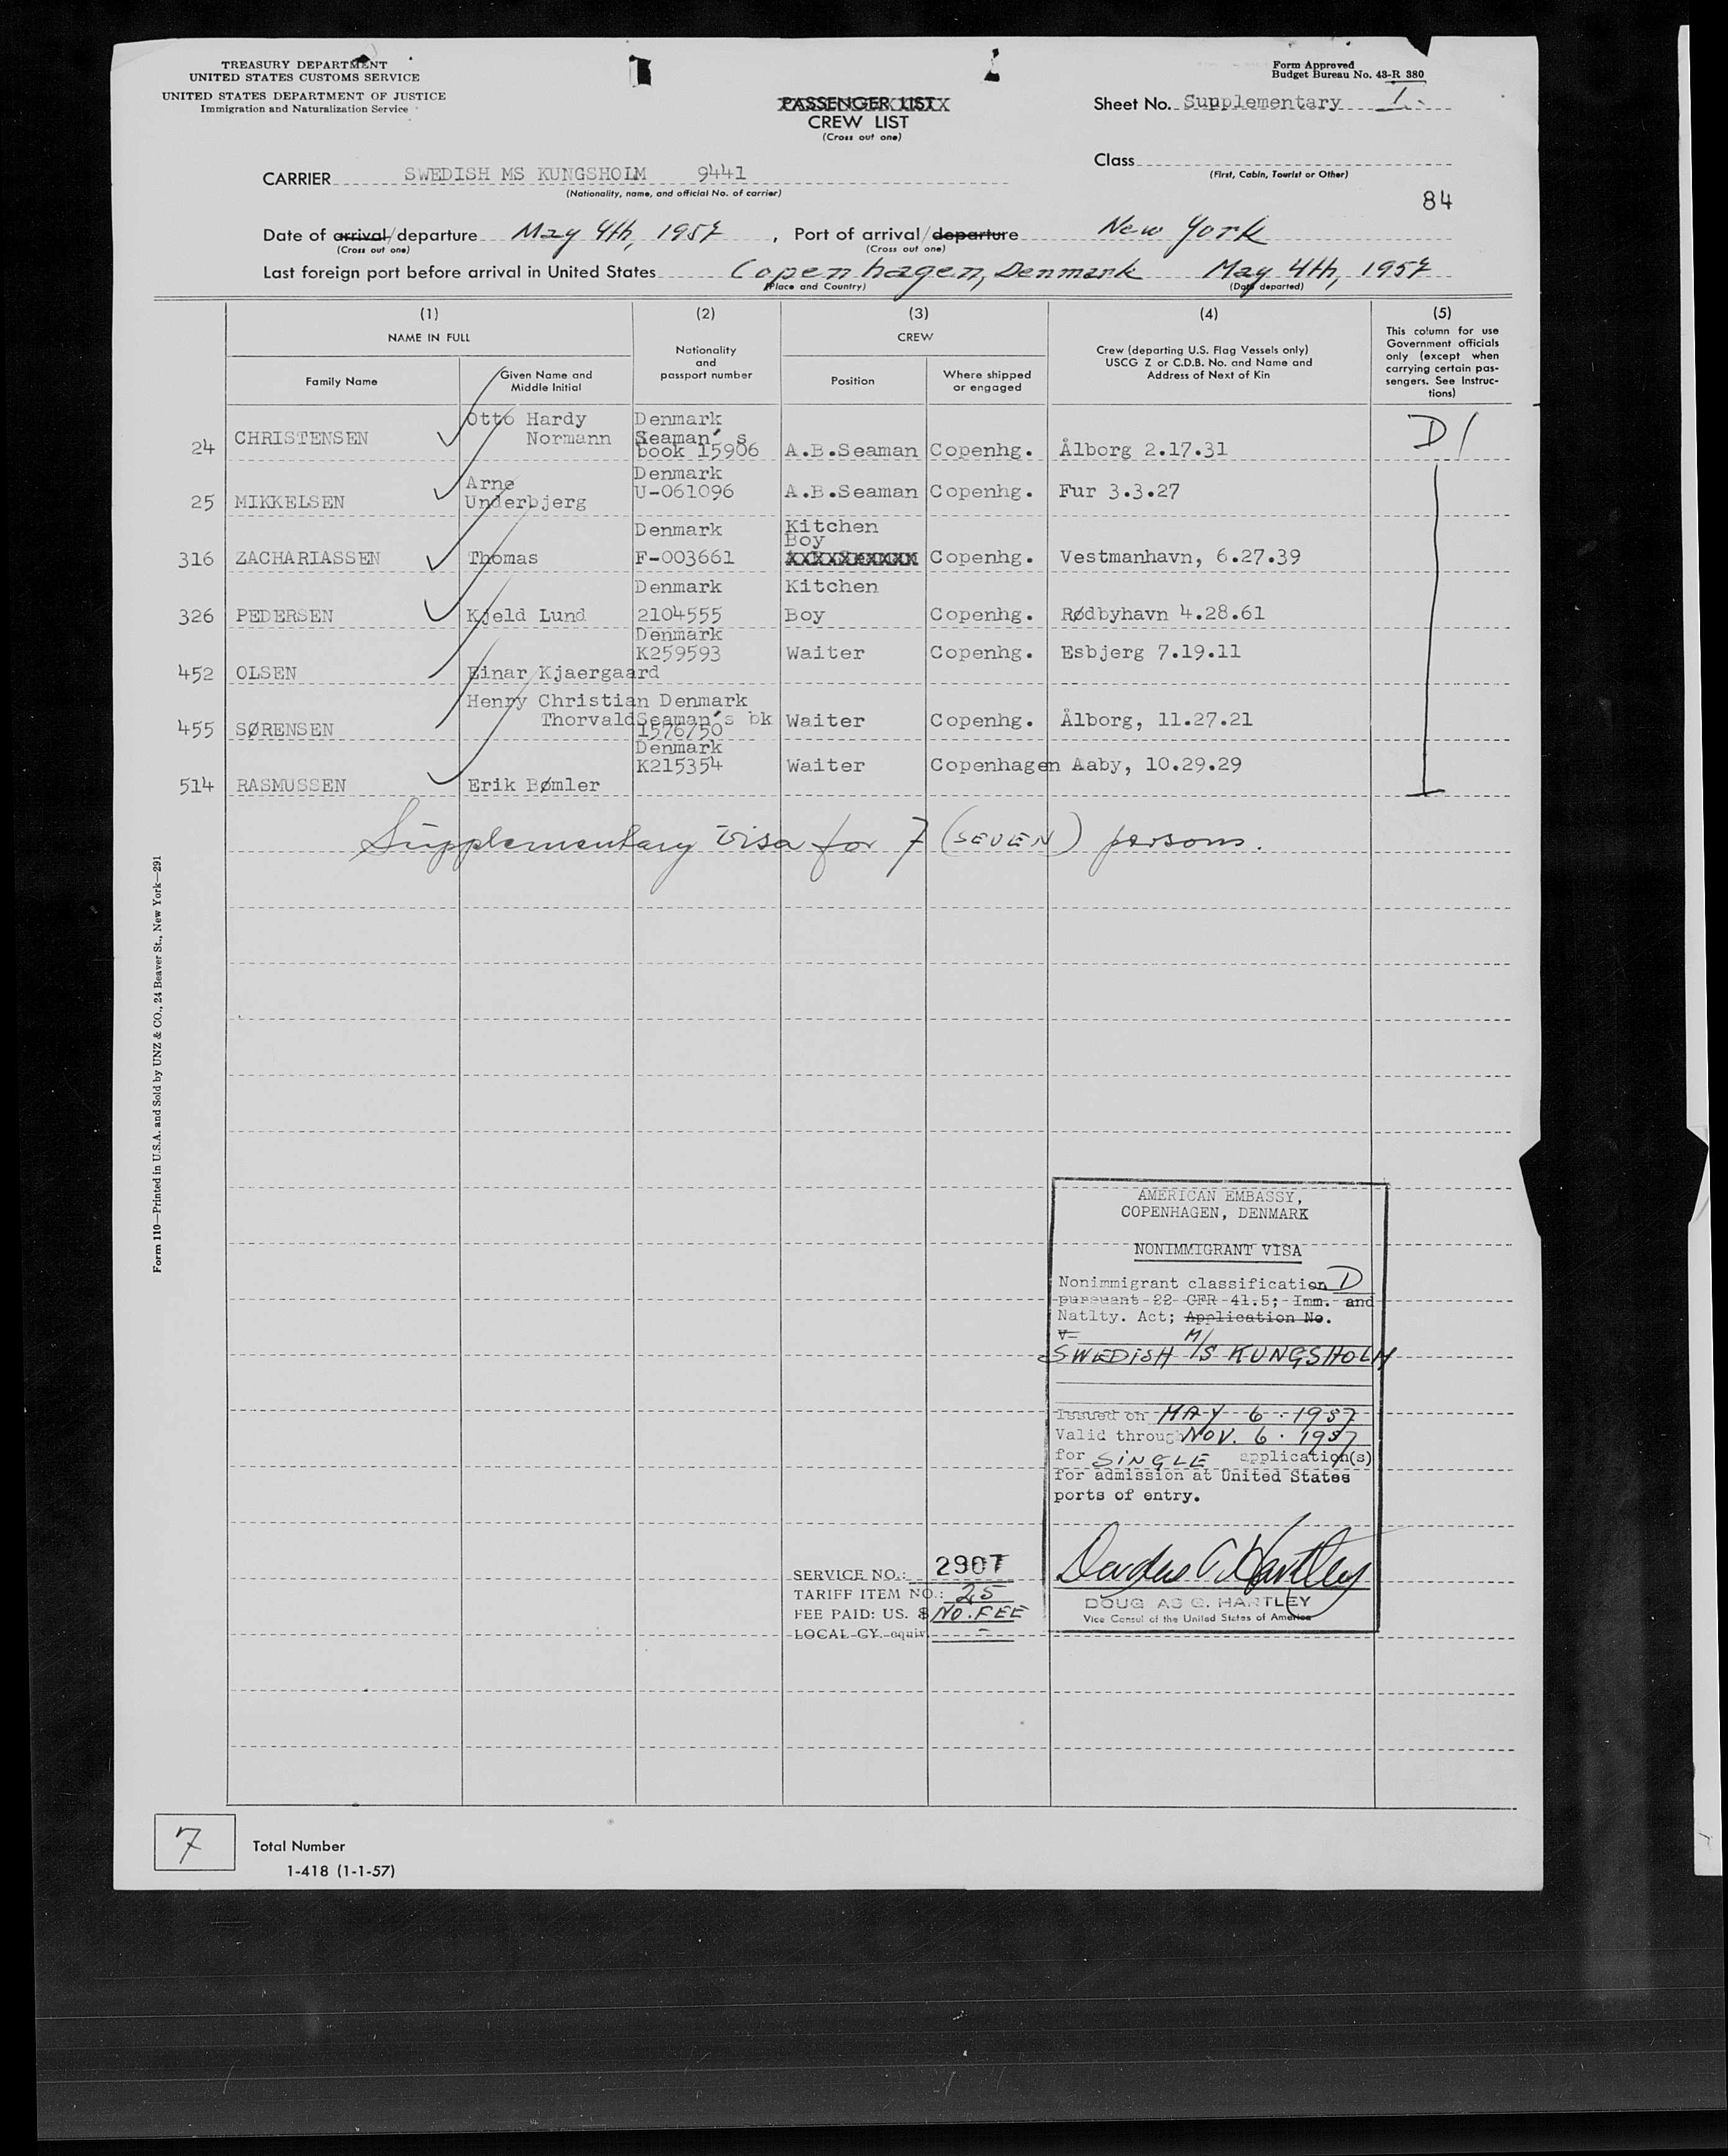 TREASURY DEPARTMENT
UNITED STATES CUSTOMS SERVICE
UNITED STATES DEPARTMENT OF JUSTICE
Immigration and Naturalization Service
PASSENGER LIST
CREW LIST
(Cross out one)
Form Approved
Budget Bureau No. 43-R 380
Sheet No. Supplementary 1.
Class
(First, Cabin, Tourist or Other)
CARRIER SWEDISH MS KUNGSHOLM 9441
(Nationality, name, and official No. of carrier)
84
Date of arrival/departure May 4th, 1957, Port of arrival/departure New York
(Cross out one) (Cross out one)
Last foreign port before arrival in United States Copenhagen, Denmark May 4th, 1957
(Place and Country) (Date departed)
(1) (2) (3) (4) (5)
NAME IN FULL
Family Name
Given Name and
Middle Initial
Nationality
and
passport number
CREW
Position
Where shipped
or engaged
Crew (departing U.S. Flag Vessels only)
USCG Z or C.D.B. No. and Name and
Address of Next of Kin
This column for use
Government officials
only (except when
carrying certain pas-
sengers. See Instruc-
tions)
Otto Hardy Denmark
24 CHRISTENSEN Normann Seaman's
book 15906 A.B.Seaman Copenhg. Ålborg 2.17.31 D1
Arne Denmark
25 MIKKELSEN Underbjerg U-061096 A.B.Seaman Copenhg. Fur 3.3.27
Denmark Kitchen
Boy
316 ZACHARIASSEN Thomas F-003661 Copenhg. Vestmanhavn, 6.27.39
Denmark Kitchen
326 PEDERSEN Kjeld Lund 2104555 Boy Copenhg. Rødbyhavn 4.28.61
Denmark
K259593 Waiter Copenhg. Esbjerg 7.19.11
452 OLSEN Einar Kjaergaard
Henry Christian Denmark
Thorvald Seaman's bk Waiter Copenhg. Ålborg, 11.27.21
455 SØRENSEN 1576750
Denmark
K215354 Waiter Copenhagen Aaby, 10.29.29
514 RASMUSSEN Erik Bømler
Supplementary visa for 7 (SEVEN) persons.
Form 110—Printed in U.S.A. and Sold by UNZ & CO., 24 Beaver St., New York—291
AMERICAN EMBASSY,
COPENHAGEN, DENMARK
NONIMMIGRANT VISA
Nonimmigrant classification D
pursuant 22 CFR 41.5; Imm. and
Natlty. Act; Application No.
V-
SWEDISH M/S KUNGSHOLM
Issued on MAY 6. 1957
Valid through NOV. 6. 1957
for SINGLE application(s)
for admission at United States
ports of entry.
Douglas G. Hartley
DOUGLAS G. HARTLEY
Vice Consul of the United States of America
SERVICE NO.: 2907
TARIFF ITEM NO.: 25
FEE PAID: US. $ NO.FEE
LOCAL CY. equiv. -
7 Total Number
1-418 (1-1-57)